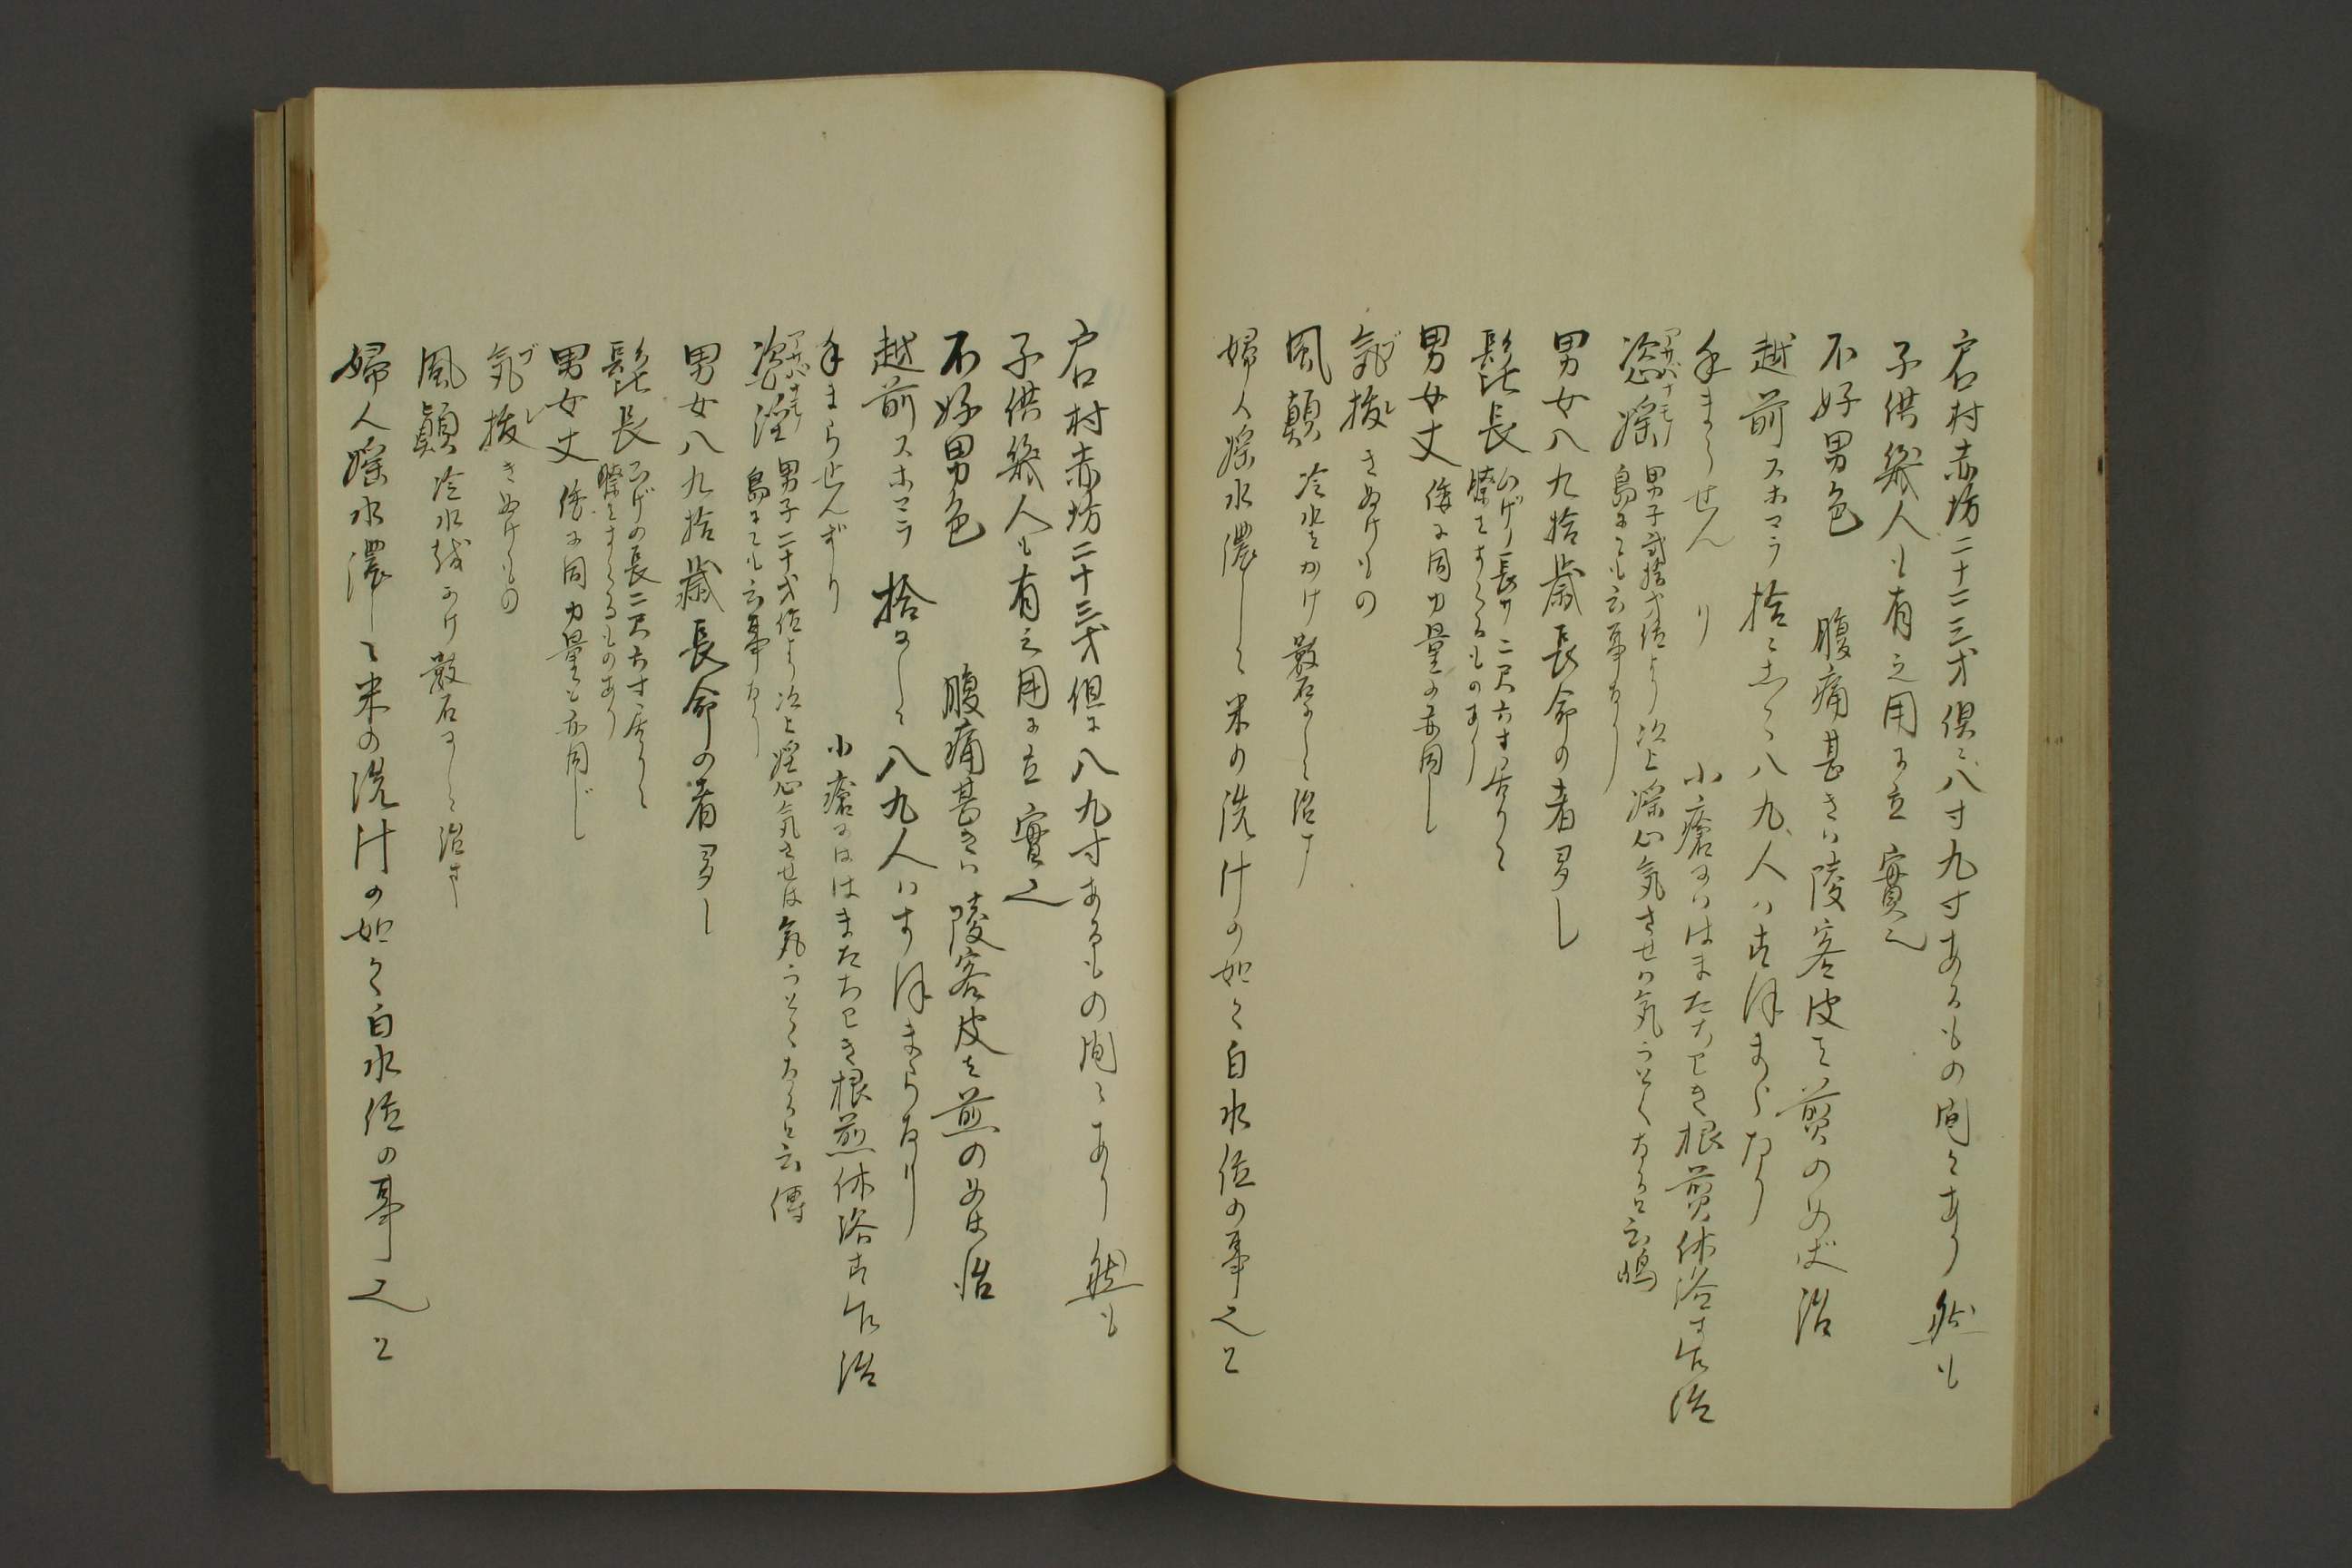 戸村赤坊二十二三才倶ニ八寸九寸あるもの間々あり然も
子供幾人も有之用ニ立實之
不好男色 腹痛甚きハ陵客皮を煎のめば治
越前スホマラ 拾ニして八九人ハすほまらなり
手まらせんずり 小瘡にハはまたちわき根煎休浴す
恣婬 男子弐拾才位より次上婬心気させハ気うとくなると云
島にても云事なり
男女八九拾歳長命の者多し
髭長 ひげの長サ二尺六寸居りて
膝をするものあり
男女丈 倭に同力量も亦同し
気抜 きぬけもの
風顛 冷水をかけ散石にして治す
婦人婬水濃しく米の洗汁の如く白水位の事之と
戸村赤坊二十二三才但ニ八九寸あるもの間々あり然も
子供幾人も有之用ニ立實之
不好男色 腹痛甚きハ陵客皮を煎のめは治
越前スホマラ 拾にして八九人ハすほまらなり
手まらせんずり 小瘡にははまたちわき根煎休浴す
恣淫 男子二十才位より次上婬心気させは気うとくなると云
島にても云事なり
男女八九拾歳長命の者多し
髭長 ひげの長二尺六寸居りて
膝をするものあり
男女丈 倭に同力量も亦同じ
気抜 きぬけもの
風顛 冷水越かけ散石にして治す
婦人婬水濃しく米の洗汁の如く白水位の事之と